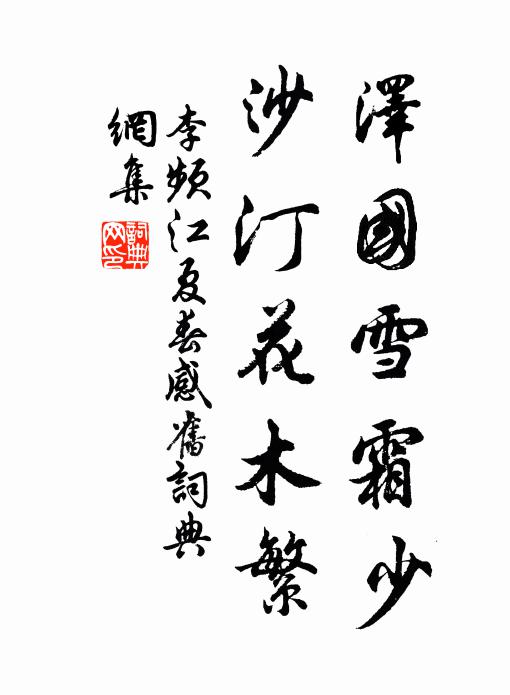 澤國雪霜少
沙汀花木繁
李頻江夏春感舊詞典
網集
詞典網印